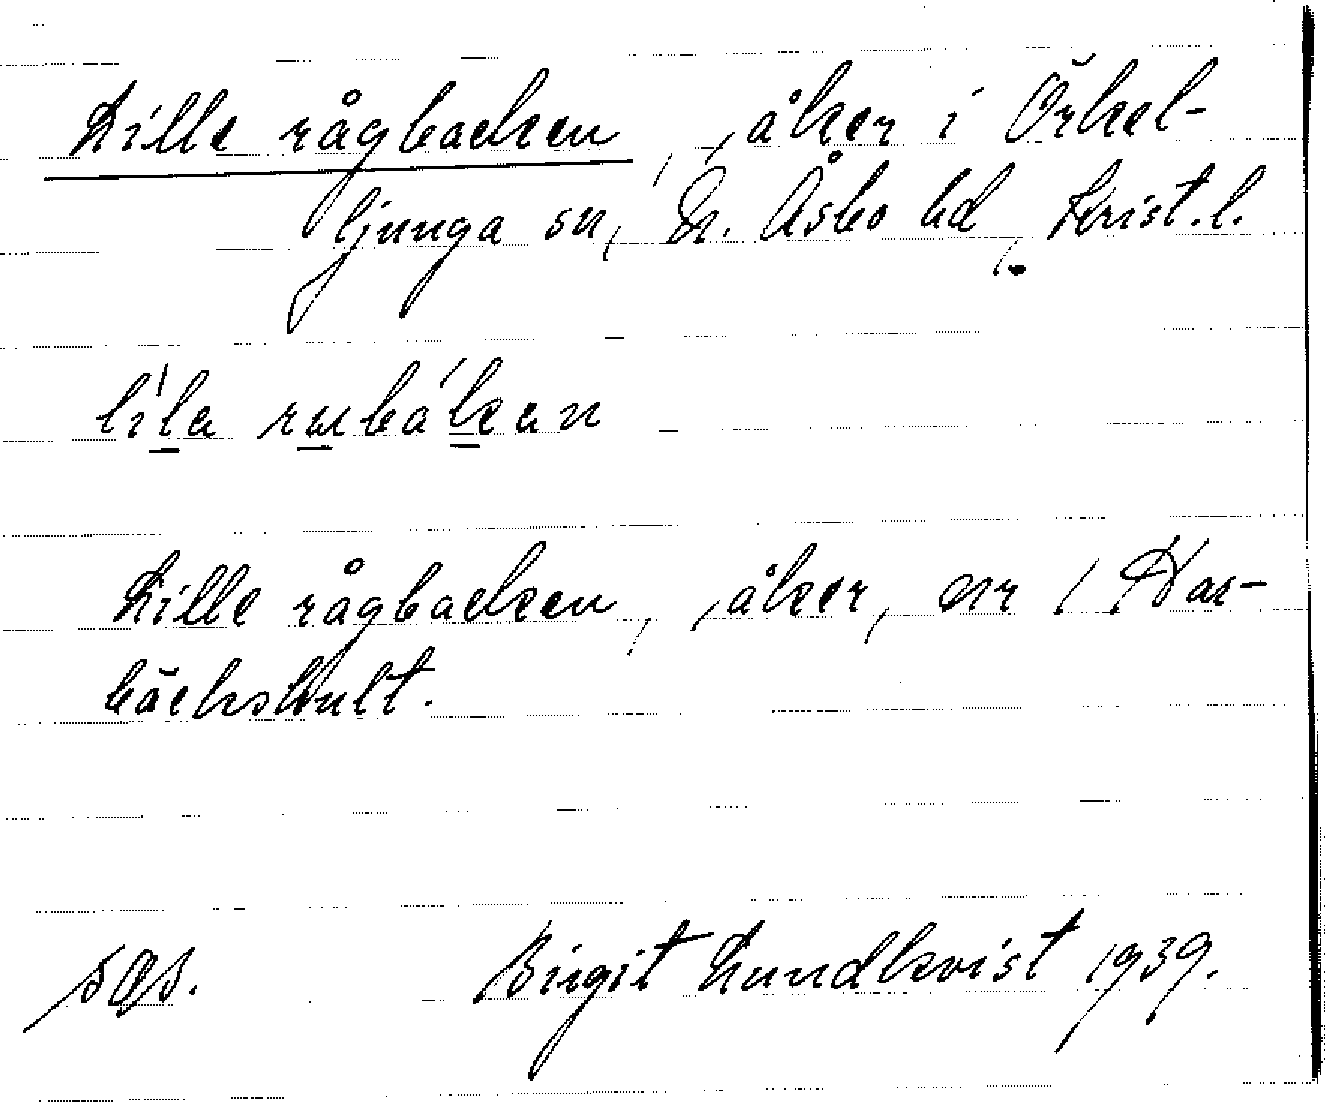 Lille rågbacken, åker i Örkel-
ljunga sn, N. Åsbo hd, Krist. l.
Lille rågbacken, åker, nr 1 Har-
bäckshult.
SOS. Birgit Lundkvist 1939.